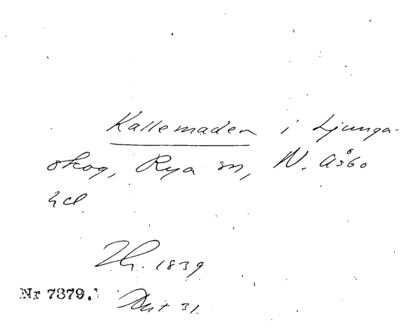 Kallemaden i Ljunga-
skog, Rya sn, N. Åsbo
hd
Lh. 1839
Nr 7379. Akt 31.